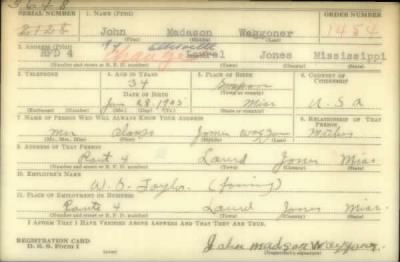 3648
SERIAL NUMBER 1. NAME (Print) ORDER NUMBER
2128 John Madason Waggoner 1484
2. ADDRESS (Print)
RFD 4 Laurel Jones Mississippi
(Number and street or R. F. D. number) (Town) (County) (State)
3. TELEPHONE 4. AGE IN YEARS 5. PLACE OF BIRTH 6. COUNTRY OF CITIZENSHIP
34
DATE OF BIRTH
Jan 28 1905 Miss U.S.A
(Exchange) (Number) (Mo.) (Day) (Yr.) (State or country)
7. NAME OF PERSON WHO WILL ALWAYS KNOW YOUR ADDRESS 8. RELATIONSHIP OF THAT PERSON
Mrs Waggoner Mother
(Mr., Mrs., Miss) (First) (Middle) (Last)
9. ADDRESS OF THAT PERSON
Rout 4 Laurel Jones Miss.
(Number and street or R. F. D. number) (Town) (County) (State)
10. EMPLOYER'S NAME
W. S. Taylor (farming)
11. PLACE OF EMPLOYMENT OR BUSINESS
Route 4 Laurel Jones Miss.
(Number and street or R. F. D. number) (Town) (County) (State)
I AFFIRM THAT I HAVE VERIFIED ABOVE ANSWERS AND THAT THEY ARE TRUE.
REGISTRATION CARD
D. S. S. Form 1 John Madson Waggoner
(Registrant's signature)